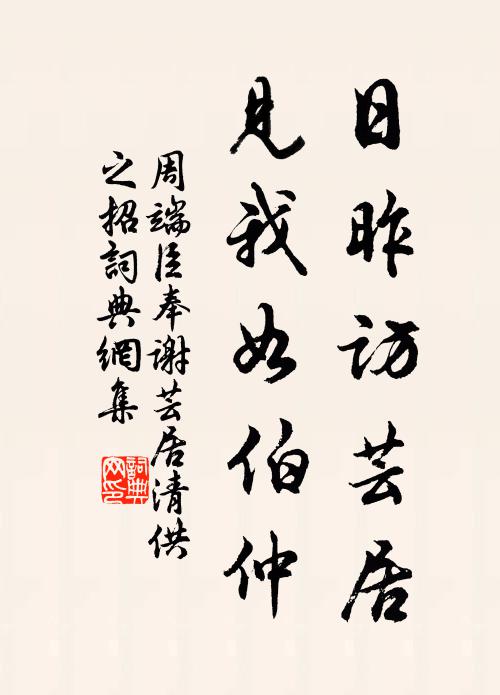 日昨訪芸居
見我如伯仲
周端臣奉謝芸居清供
之招詞典網集
詞典
网印